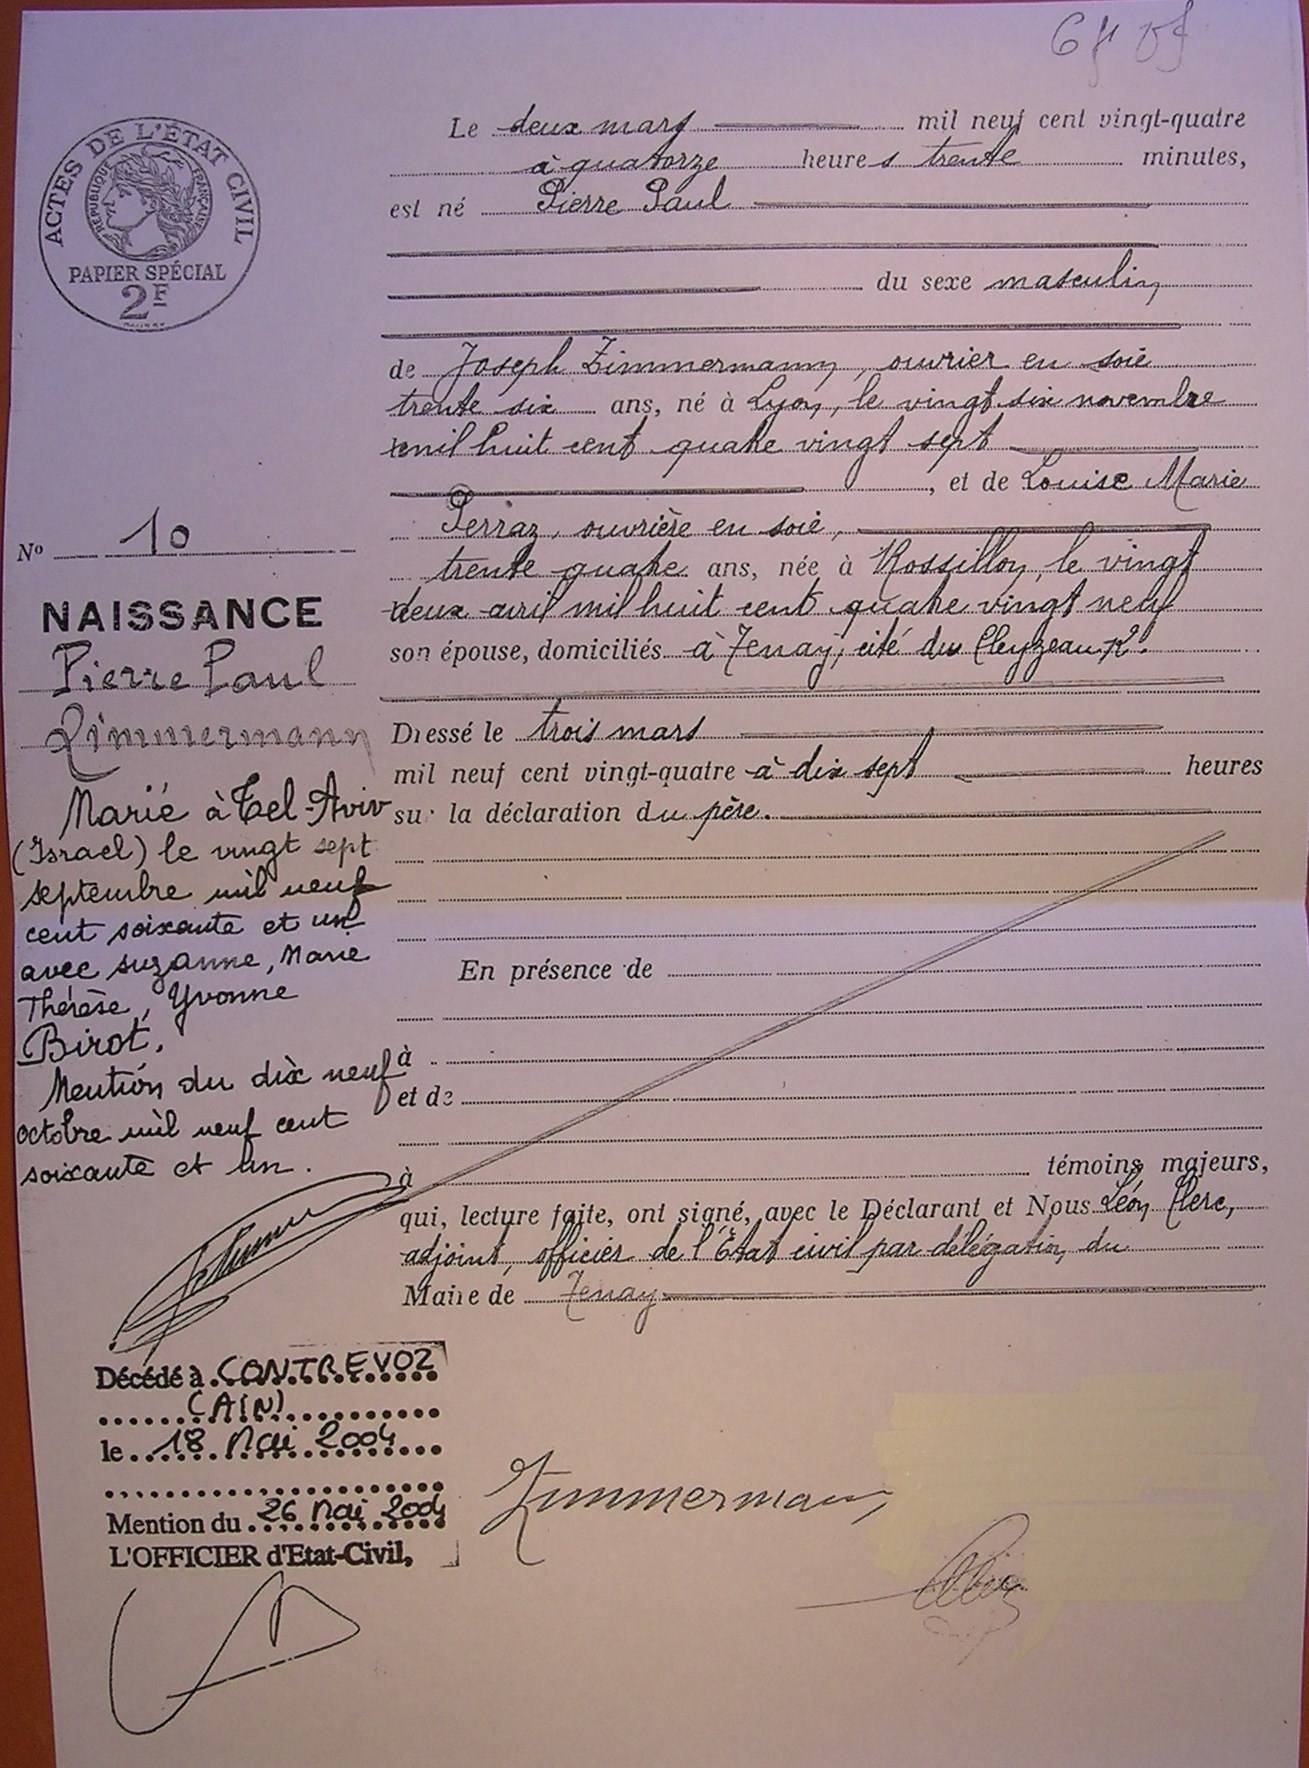 ACTES DE L'ÉTAT CIVIL
RÉPUBLIQUE FRANÇAISE
PAPIER SPÉCIAL
2F
Le deux mars mil neuf cent vingt-quatre
à quatorze heures trente minutes,
est né Pierre Paul
du sexe masculin
de Joseph Zimmermann, ouvrier en soie
trente six ans, né à Lyon, le vingt six novembre
mil huit cent quatre vingt sept
, et de Louise Marie
Perraz, ouvrière en soie,
trente quatre ans, née à Rossillon, le vingt
deux avril mil huit cent quatre vingt neuf
son épouse, domiciliés à Tenay, cité du Cleyzeau n°2.
Dressé le trois mars
mil neuf cent vingt-quatre à dix sept heures
sur la déclaration du père.
En présence de
à
et de
à témoins majeurs,
qui, lecture faite, ont signé, avec le Déclarant et Nous Léon Clerc,
adjoint, officier de l'État civil par délégation du
Maire de Tenay
Nº 10
NAISSANCE
Pierre Paul
Zimmermann
Marié à Tel-Aviv
(Israel) le vingt sept
septembre mil neuf
cent soixante et un
avec Suzanne, Marie
Thérèse, Yvonne
Birot.
Mention du dix neuf
octobre mil neuf cent
soixante et un.
Décédé à CONTREVOZ
(AIN)
le 18 Mai 2004
Mention du 26 Mai 2004
L'OFFICIER d'Etat-Civil,
Zimmermann